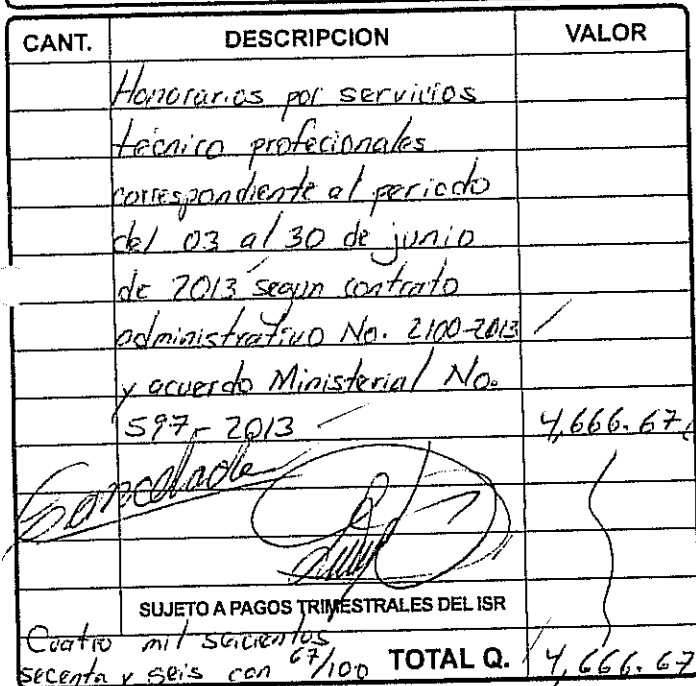 CANT. DESCRIPCION VALOR
Honorarios por servicios
técnico profecionales
correspondiente al periodo
del 03 al 30 de junio
de 2013 segun contrato
administrativo No. 2100-2013
y acuerdo Ministerial No.
597-2013 4,666.67
Cancelado
SUJETO A PAGOS TRIMESTRALES DEL ISR
Cuatro mil seicientos
secenta y seis con 67/100 TOTAL Q. 4,666.67